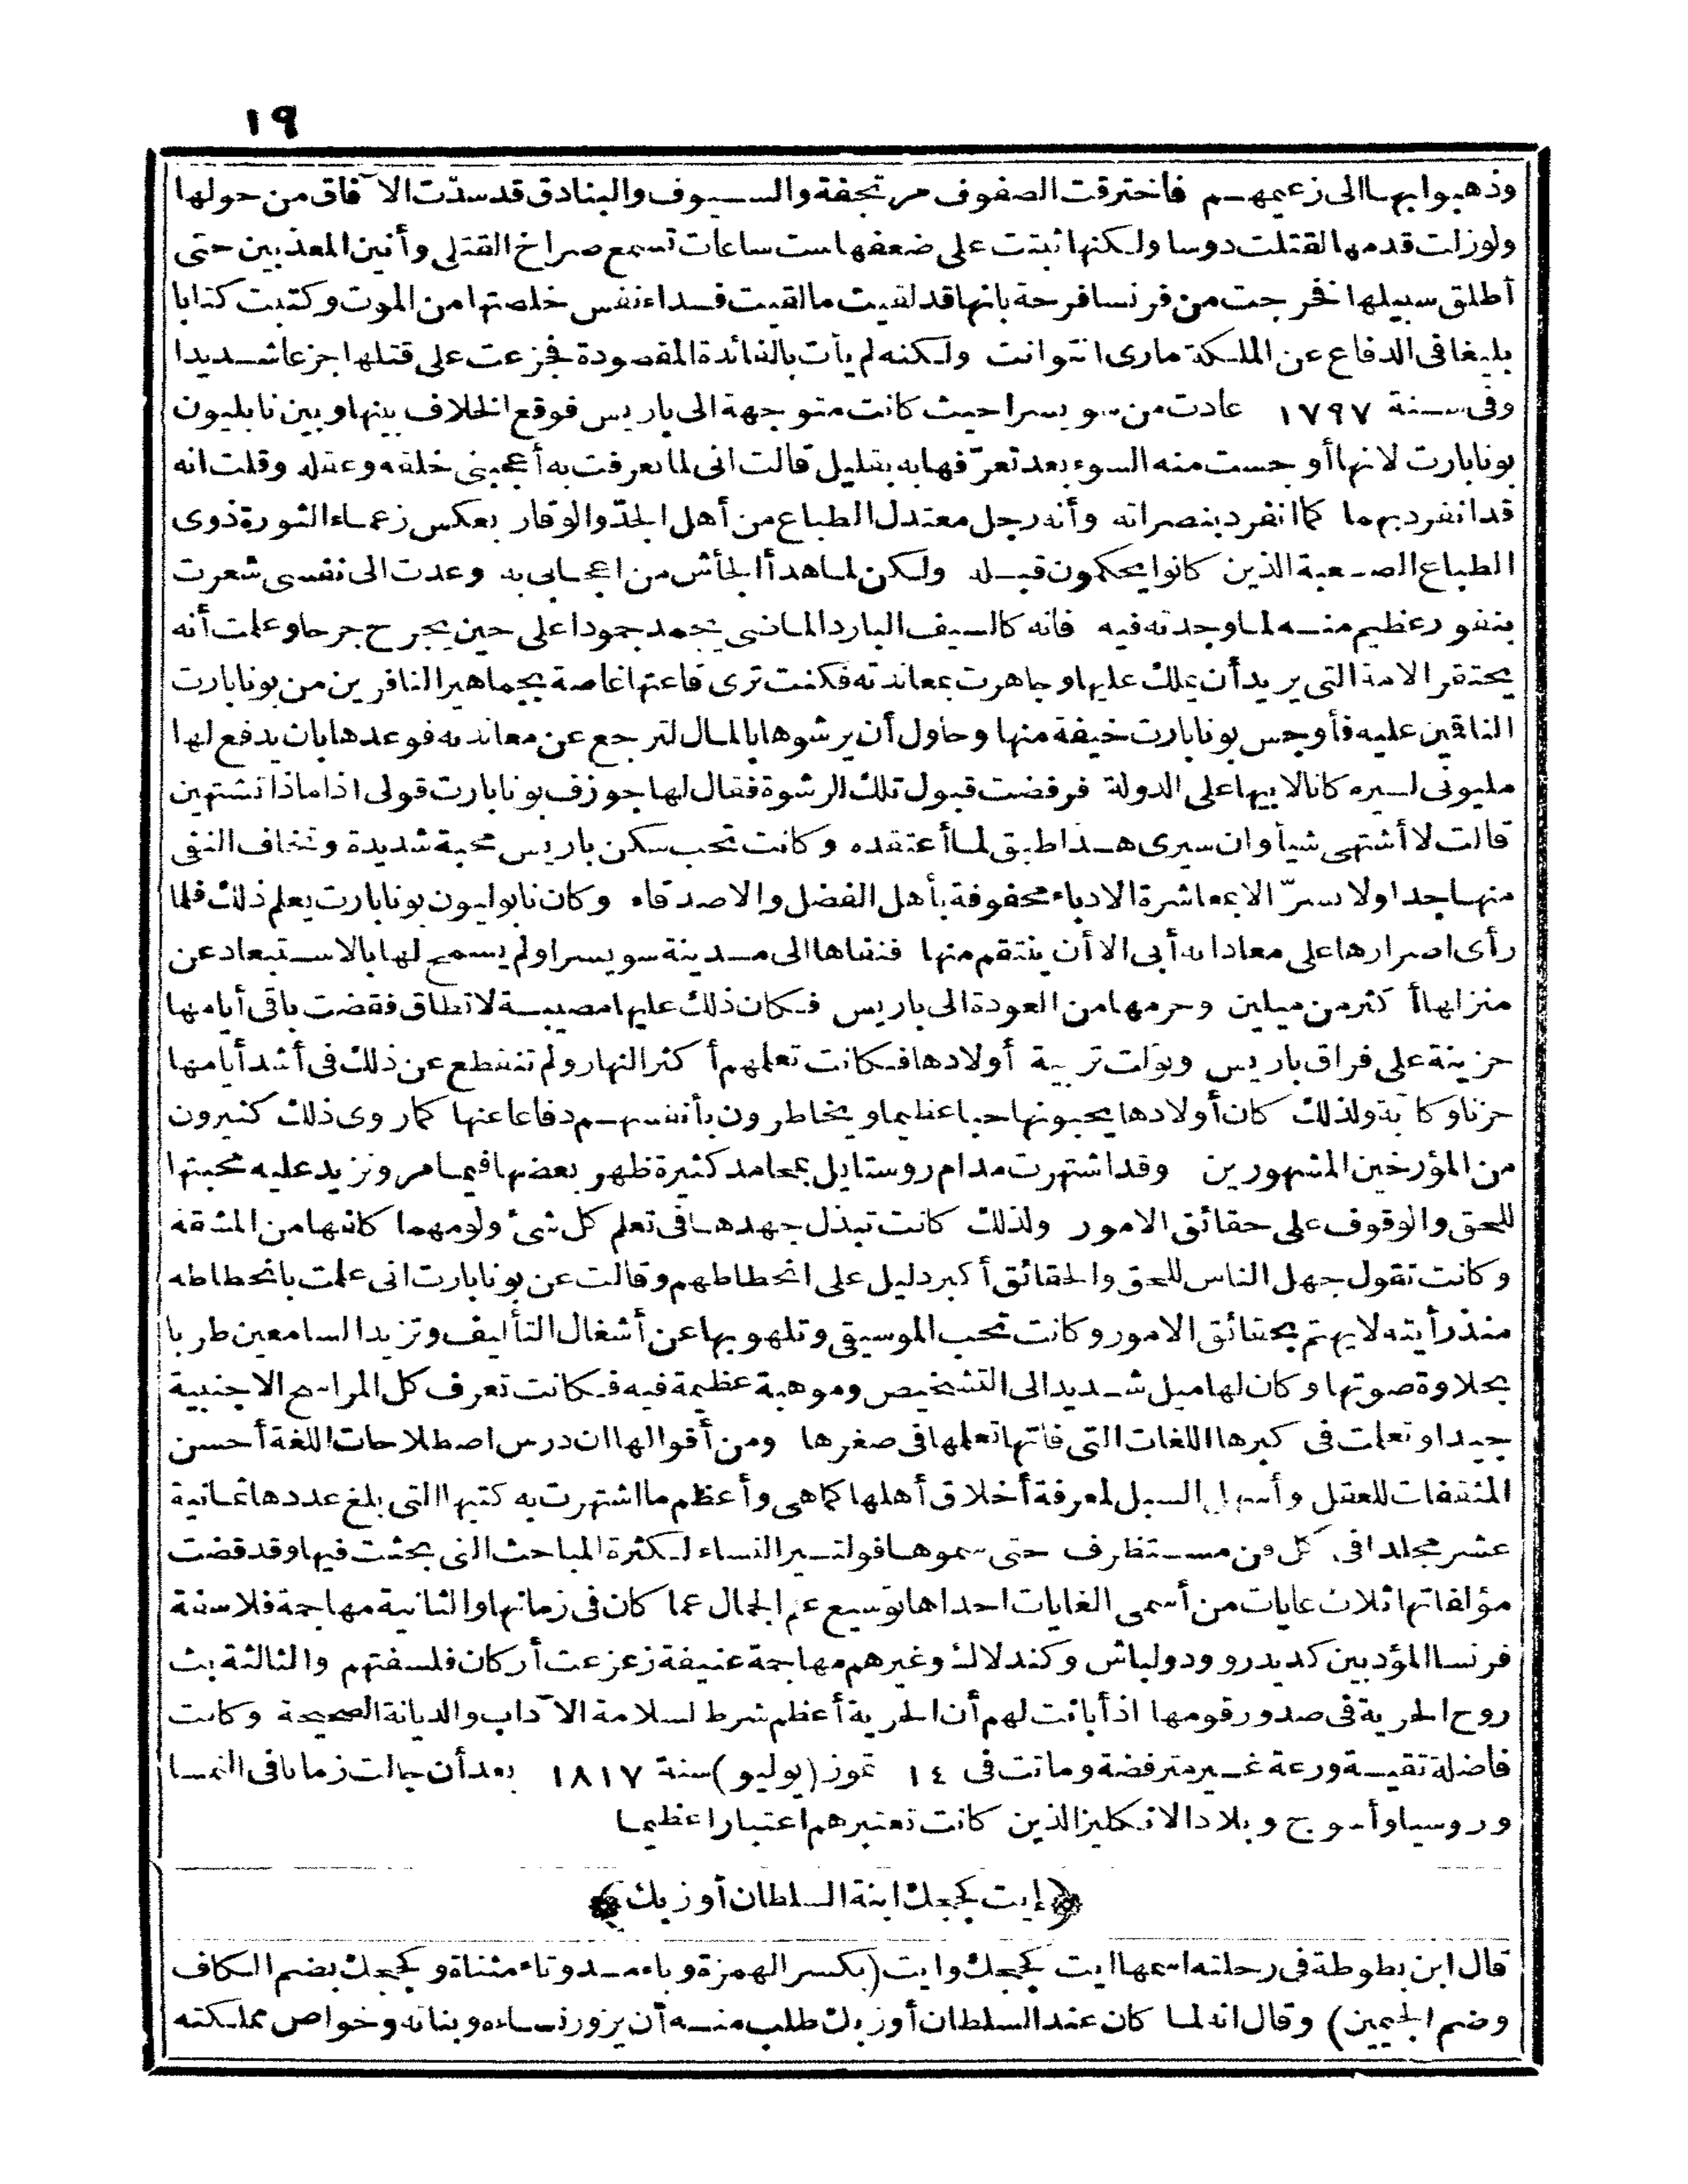 ١٩
وذهبوا بها الى زعيمهم فاخترقت الصفوف مرتجفة والسيوف والبنادق قد سدّت الآفاق من حولها
ولو زلت قدمها لقتلت دوسا ولكنها ثبتت على ضعفها ست ساعات تسمع صراخ القتلى وأنين المعذبين حتى
أطلق سبيلها فخرجت من فرنسا فرحة بانها قد لقيت ما لقيت فداء نفس خلصتها من الموت وكتبت كتابا
بليغا فى الدفاع عن الملكة مارى انتوانت ولكنه لم يأت بالفائدة المقصودة فجزعت على قتلها جزعا شديدا
وفى سنة ١٧٩٧ عادت من سويسرا حيث كانت متوجهة الى باريس فوقع الخلاف بينها وبين نابليون
بونابارت لانها أوجست منه السوء بعد تعرّفها به بقليل قالت انى لما تعرفت به أعجبنى خلقه وعقله وقلت انه
قد انفرد بهما كما انفرد بنصراته وأنه رجل معتدل الطباع من أهل الجدّ والوقار بعكس زعماء الثورة ذوى
الطباع الصعبة الذين كانوا يحكمون قبله ولكن لما هدأ الجأش من اعجابى به وعدت الى نفسى شعرت
بنفور عظيم منه لما وجدته فيه فانه كالسيف البارد الماضى يجمد جمودا على حين يجرح جرحا وعلمت أنه
يحتقر الامة التى يريد أن يملك عليها وجاهرت بمعاندته فكنت ترى قاعتها غاصة بجماهير النافرين من بونابارت
الناقمين عليه فأوجس بونابارت خيفة منها وحاول أن يرشوها بالمال لترجع عن معاندته فوعدها بان يدفع لها
مليونى ليره كانا لابيها على الدولة فرفضت قبول تلك الرشوة فقال لها جوزف بونابارت قولى اذا ماذا تشتهين
قالت لا أشتهى شيأ وان سيرى هذا طبق لما أعتقده وكانت تحب سكن باريس محبة شديدة وتخاف النفى
منها جدا ولا تسرّ الا بمعاشرة الادباء محفوفة بأهل الفضل والاصدقاء وكان نابوليون بونابارت يعلم ذلك فلما
رأى اصرارها على معاداته أبى الا أن ينتقم منها فنفاها الى مدينة سويسرا ولم يسمح لها بالاستبعاد عن
منزلها أكثر من ميلين وحرمها من العودة الى باريس فكان ذلك عليها مصيبة لا تطاق فقضت باقى أيامها
حزينة على فراق باريس وتولت تربية أولادها فكانت تعلمهم أكثر النهار ولم تنقطع عن ذلك فى أشد أيامها
حزنا وكآبة ولذلك كان أولادها يحبونها حبا عظيما ويخاطرون بأنفسهم دفاعا عنها كما روى ذلك كثيرون
من المؤرخين المشهورين وقد اشتهرت مدام روستايل بمحامد كثيرة ظهر بعضها فيما مر ونزيد عليه محبتها
للحق والوقوف على حقائق الامور ولذلك كانت تبذل جهدها فى تعلم كل شئ ولو مهما كانها من المشقة
وكانت تقول جهل الناس للحق والحقائق أكبر دليل على انحطاطهم وقالت عن بونابارت انى علمت بانحطاطه
منذ رأيته لا يهتم بحقائق الامور وكانت تحب الموسيقى وتلهو بها عن أشغال التأليف وتزيد السامعين طربا
بحلاوة صوتها وكان لها ميل شديد الى التشخيص وموهبة عظيمة فيه فكانت تعرف كل المراسح الاجنبية
جيدا وتعلمت فى كبرها اللغات التى فاتها تعلمها فى صغرها ومن أقوالها ان درس اصطلاحات اللغة أحسن
المثقفات للعقل وأسهل السبل لمعرفة أخلاق أهلها كما هى وأعظم ما اشتهرت به كتبها التى بلغ عددها ثمانية
عشر مجلدا فى كل فن مستظرف حتى سموها فولتير النساء لكثرة المباحث التى بحثت فيها وقد قضت
مؤلفاتها ثلاث غايات من أسمى الغايات احداها توسيع علم الجمال عما كان فى زمانها والثانية مهاجمة فلاسفة
فرنسا المؤدبين كديدرو ودولباش وكندلاك وغيرهم مهاجمة عنيفة زعزعت أركان فلسفتهم والثالثة بث
روح الحرية فى صدور قومها اذ أبانت لهم أن الحرية أعظم شرط لسلامة الآداب والديانة الصحيحة وكانت
فاضلة تقية ورعة غير مترفضة وماتت فى ١٤ تموز (يوليو) سنة ١٨١٧ بعد أن جالت زمانا فى النمسا
وروسيا وأسوج وبلاد الانكليز الذين كانت تعتبرهم اعتبارا عظيما
﴿إيت كججك ابنة السلطان أوزبك﴾
قال ابن بطوطة فى رحلته اسمها ايت كججك وايت (بكسر الهمزة وياء مد وتاء مثناة وكججك بضم الكاف
وضم الجيمين) وقال انه لما كان عند السلطان أوزبك طلب منه أن يزور نساءه وبناته وخواص مملكته